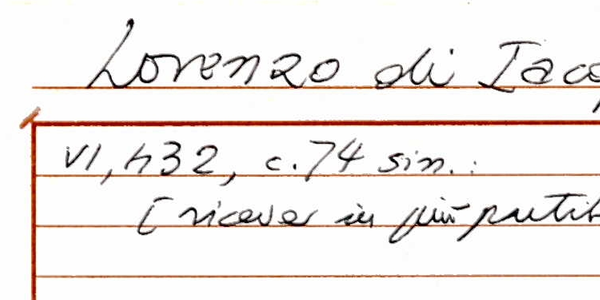 Lorenzo di Iacop
VI, 432, c. 74 sin.:
[ riceve in più partit